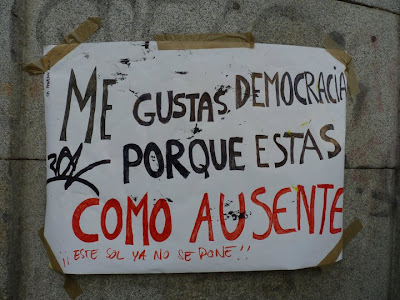 ME GUSTAS DEMOCRACIA
PORQUE ESTAS
COMO AUSENTE
¡¡ESTE SOL YA NO SE PONE!!